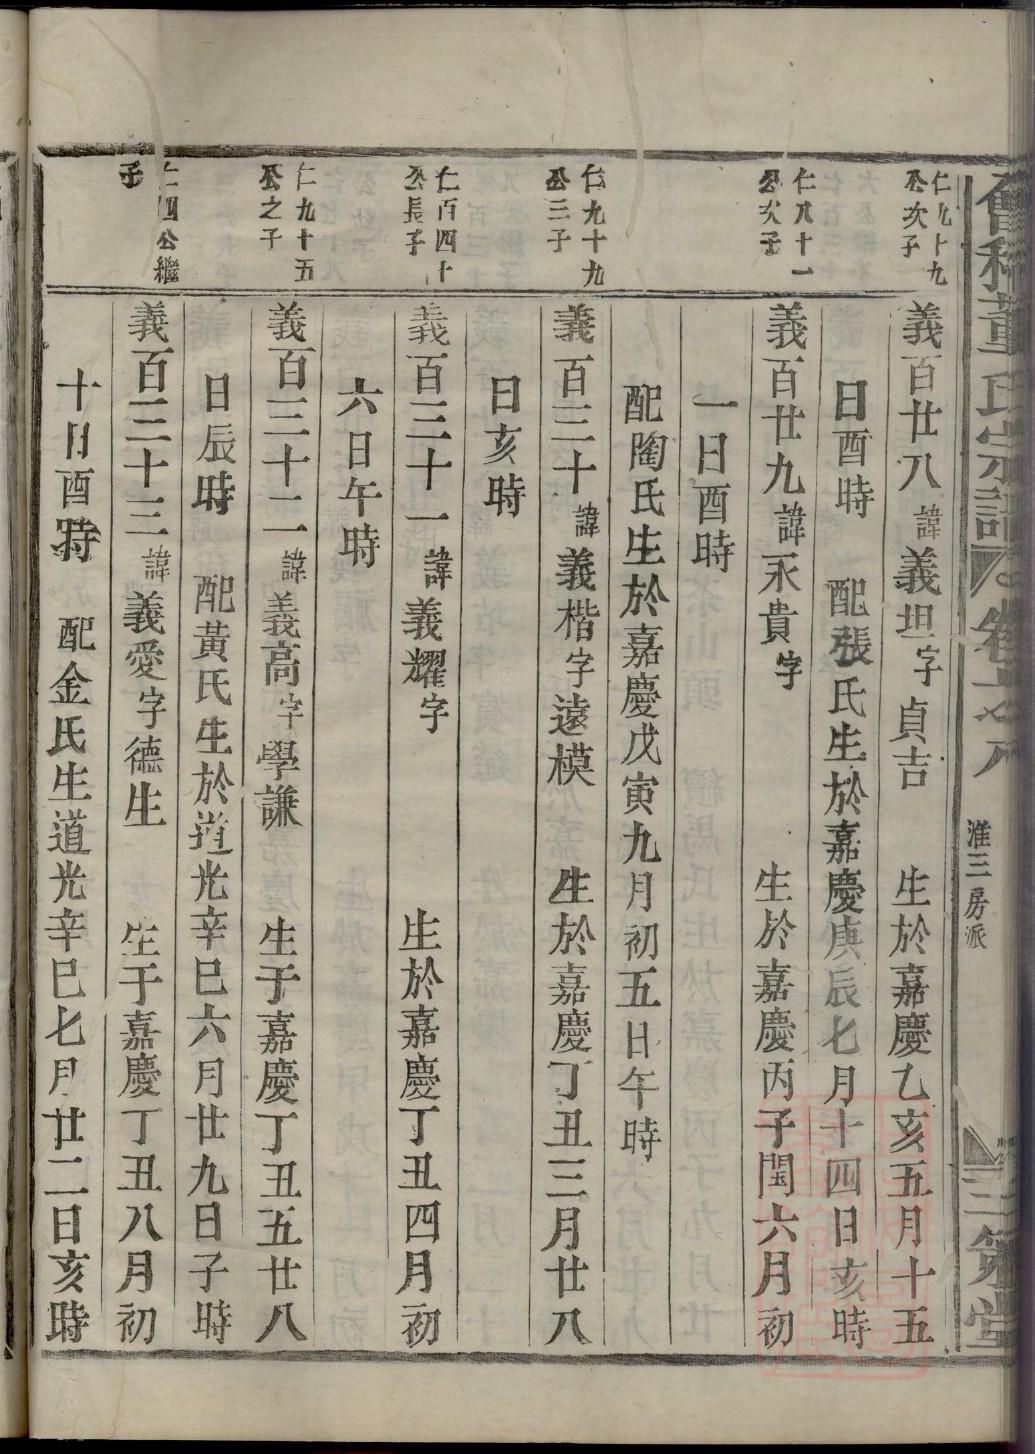 董氏宗譜 卷之八 淮三房派
仁九十九公次子
義百廿八諱義坦字貞吉 生於嘉慶乙亥五月十五
日酉時 配張氏生於嘉慶庚辰七月十四日亥時
仁八十一公次子
義百廿九諱永貴字 生於嘉慶丙子閏六月初
一日酉時
配陶氏生於嘉慶戊寅九月初五日午時
仁九十九公三子
義百三十諱義楷字遠模 生於嘉慶丁丑三月廿八
日亥時
仁百四十公長子
義百三十一諱義耀字 生於嘉慶丁丑四月初
六日午時
仁九十五公之子
義百三十二諱義高字學謙 生于嘉慶丁丑五廿八
日辰時 配黃氏生於道光辛巳六月廿九日子時
仁四公繼子
義百三十三諱義愛字德生 生于嘉慶丁丑八月初
十日酉時 配金氏生道光辛巳七月廿二日亥時